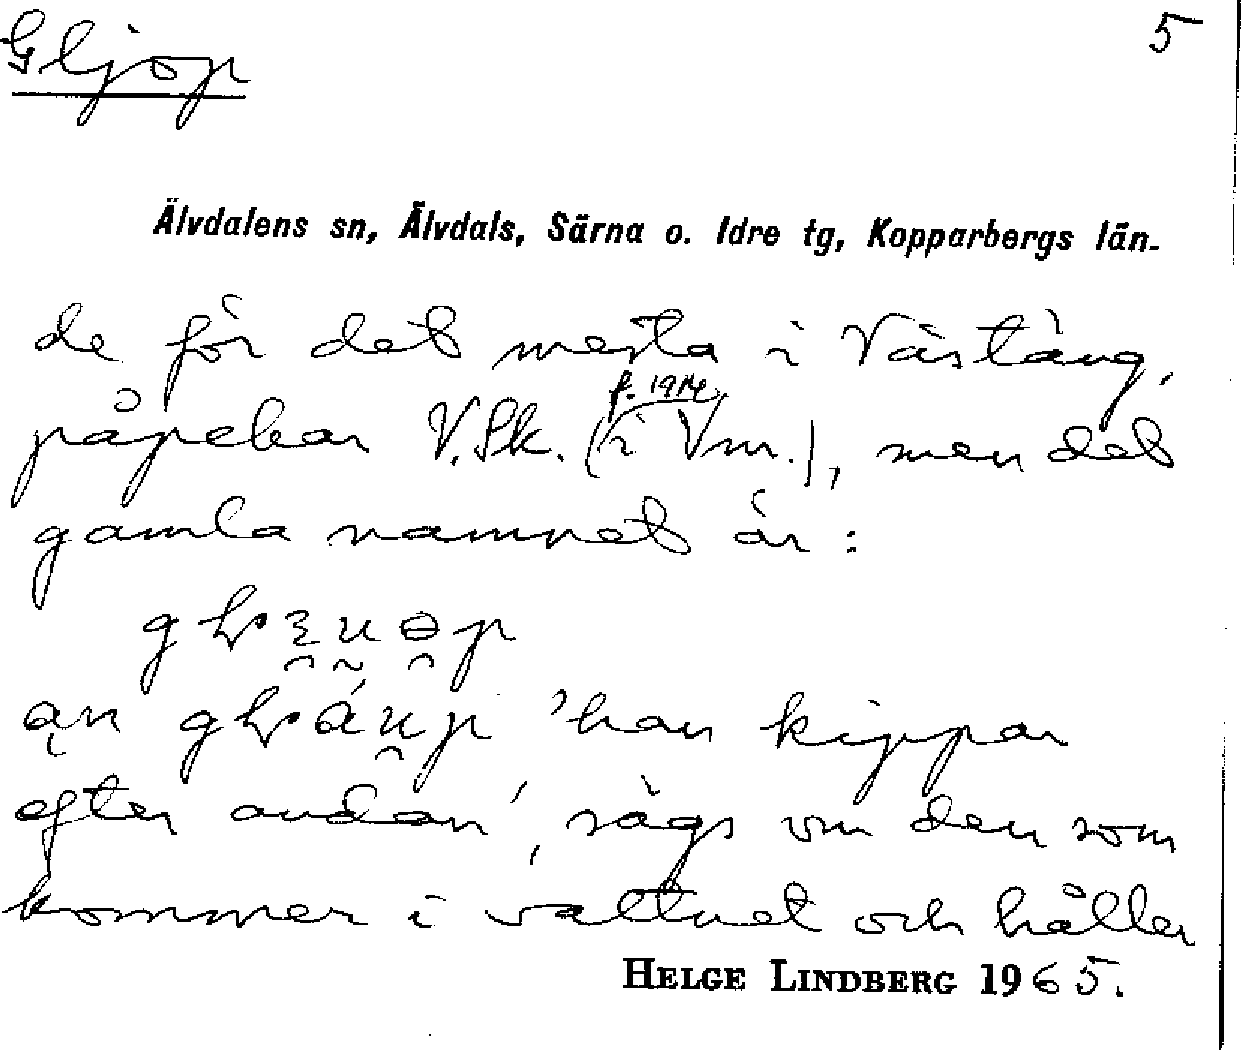 Gljöp 5
Älvdalens sn, Älvdals, Särna o. Idre tg, Kopparbergs län.
de för det mesta i Västäng,
f. 1914
påpekar V.Sk. (i Vm.), men det
gamla namnet är:
an 'han kippar
efter andan', sägs om den som
kommer i vattnet och håller
HELGE LINDBERG 1965.